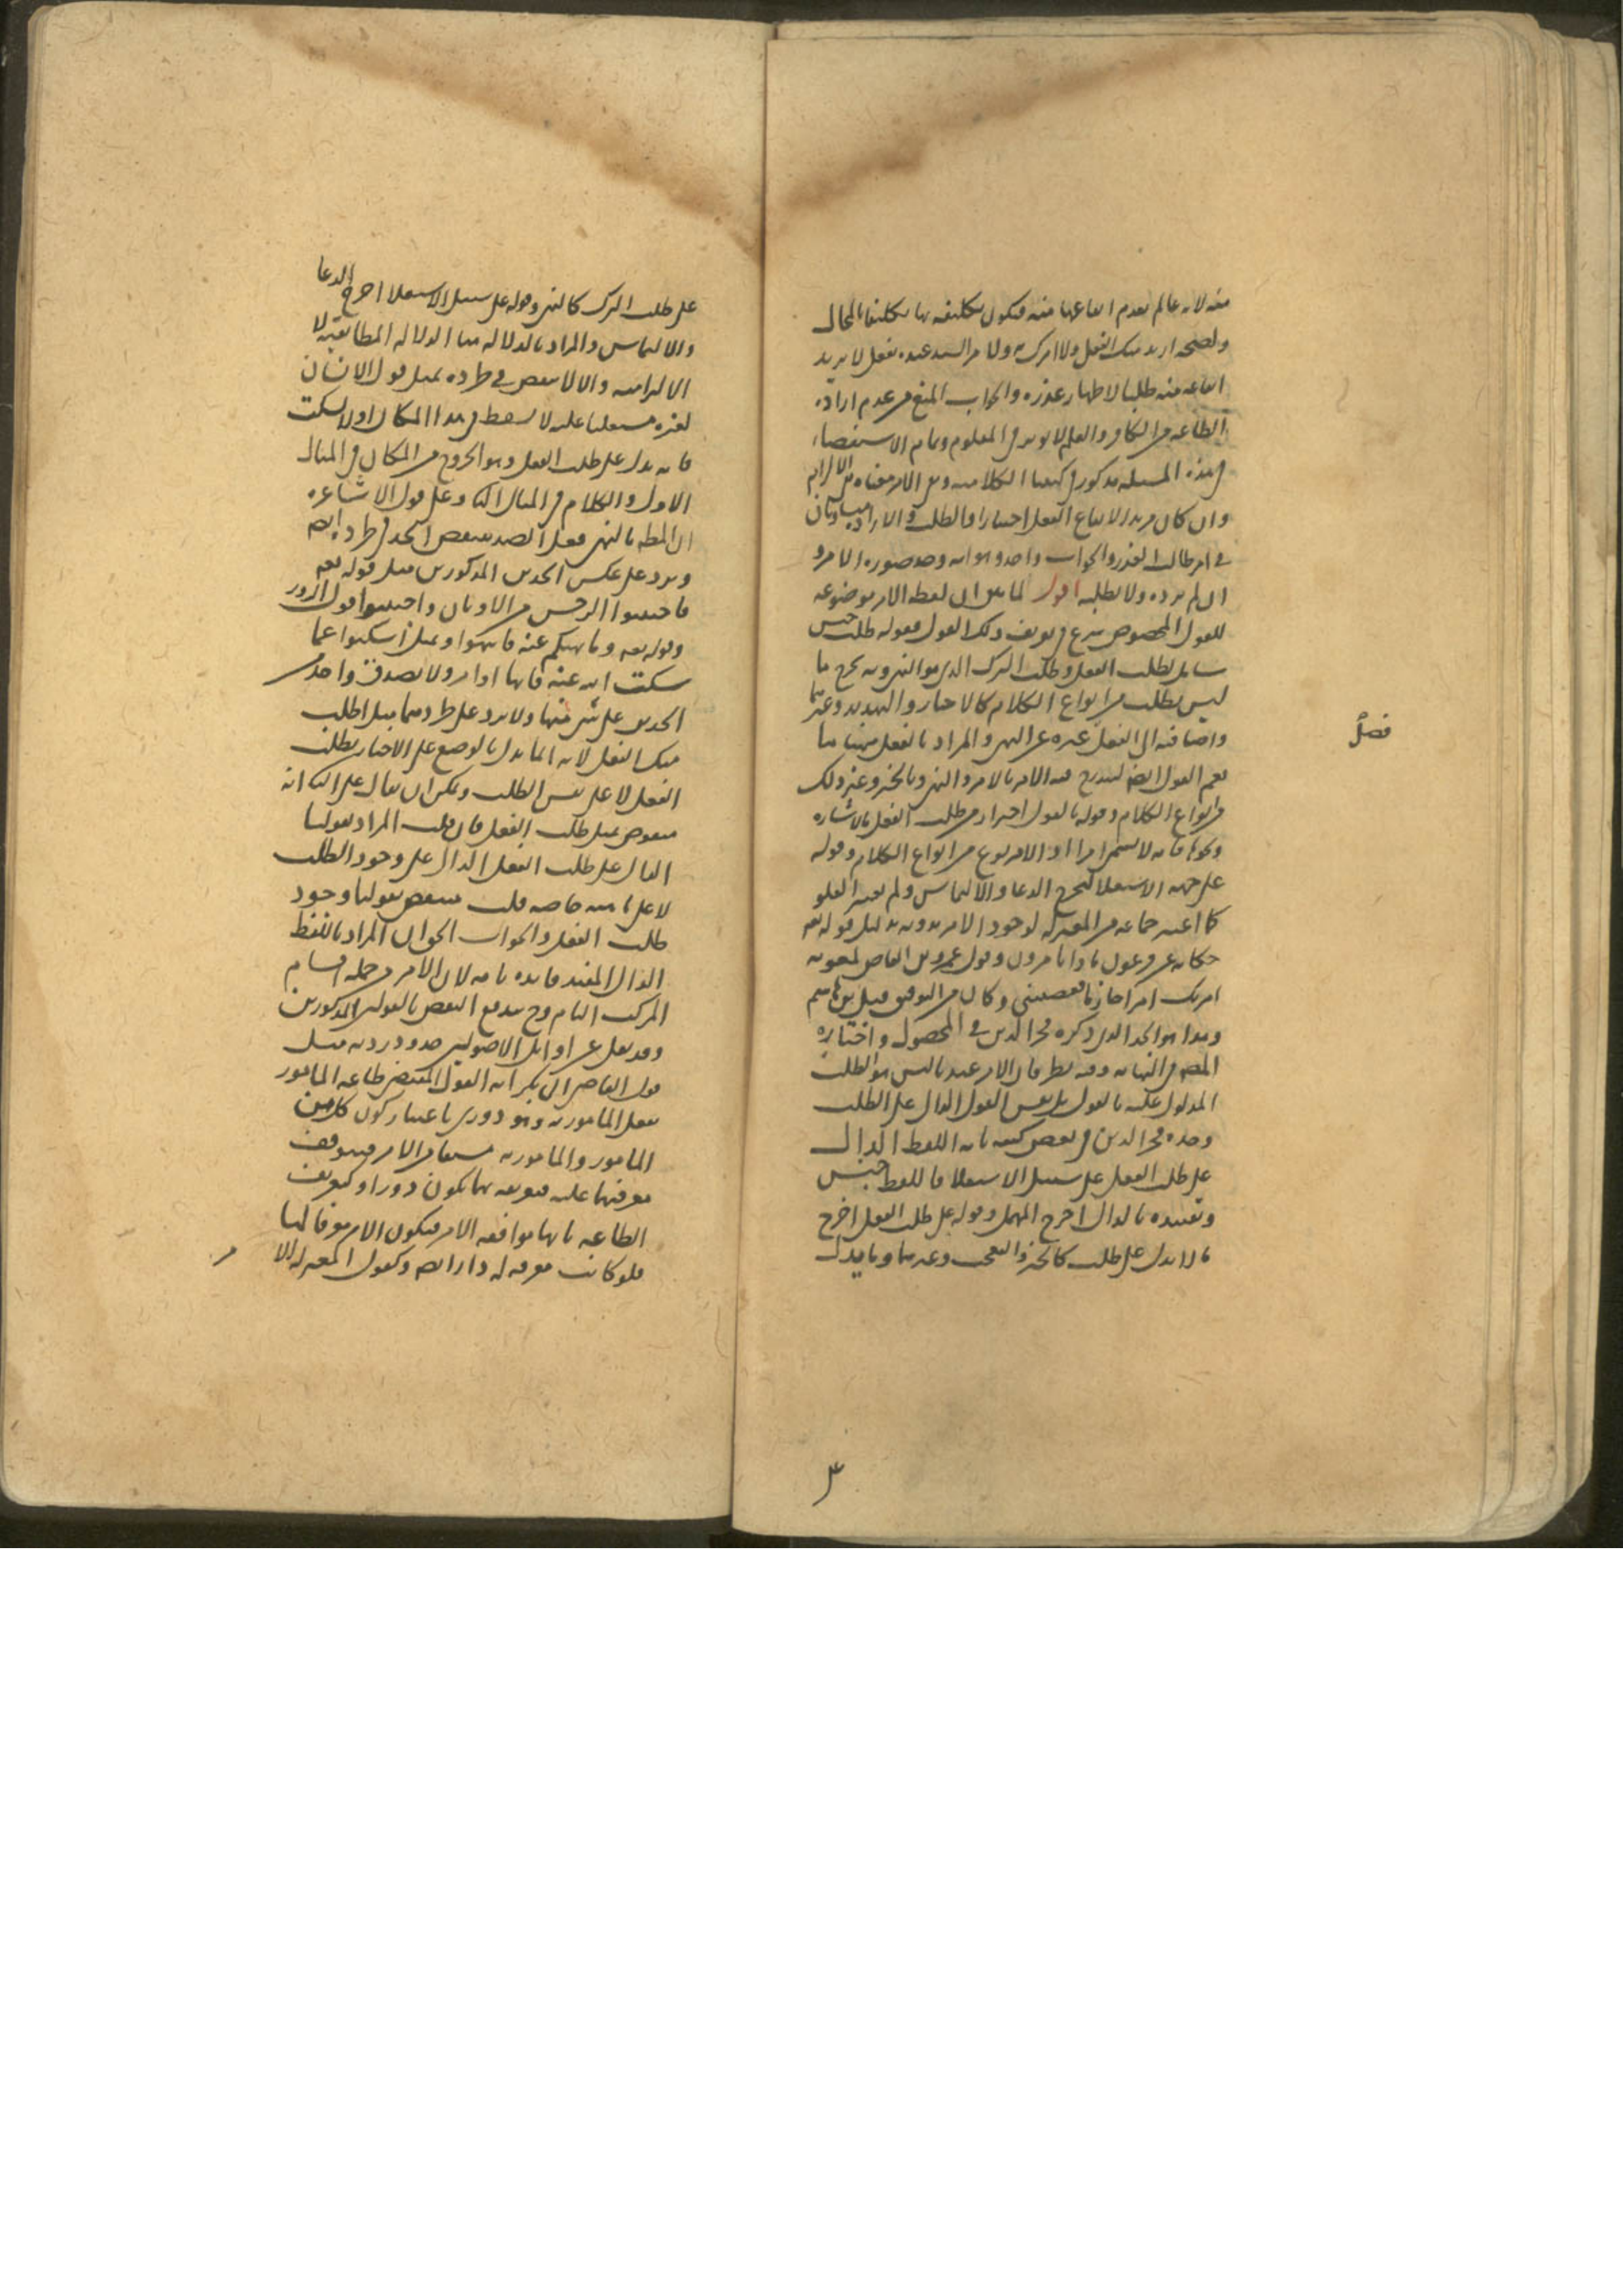 منه لانه عالم بعدم ايقاعها منه فيكون تكليفه بها تكليفا بالمحال
ولصحة اريد منك الفعل ولا امرك به ولامر السيد عبده بفعل لا يريد
ايقاعه منه طلبا لاظهار عذره والجواب المنع من عدم ارادة
الطاعة من الكافر والعلم لا يوثر في المعلوم وتمام الاستقصاء
في هذه المسئله مذكور في كتبنا الكلاميه ومع الامر معناه من الالزام
وان كان مريدا لايقاع الفعل اختيارا والطلب والارادة متساويتان
في امر طالب العذر والجواب واحد وهو انه وجد صورة الامر و
ان لم يرده ولا يطلبه اقول لما بين ان لفظه الامر موضوعه
للقول المخصوص شرع في تعريف ذلك القول فقوله طلب جنس
شامل لطلب الفعل وطلب الترك الذي هو النهي وبه يخرج ما
ليس بطلب من انواع الكلام كالاخبار والتهديد وغيرهما
واضافته الى الفعل يخرجه عن النهي والمراد بالفعل هيهنا ما
فصل
يعم القول ايضا ليندرج فيه الامر بالامر والنهي وبالخبر وغير ذلك
من انواع الكلام وقوله بالقول احتراز من طلب الفعل بالاشاره
ونحوها فانه لا يسمى امرا اذ الامر نوع من انواع الكلام وقوله
على جهه الاستعلا ليخرج الدعا والالتماس ولم يعتبر العلو
كما اعتبره جماعه من المعتزله لوجود الامر بدونه بدليل قوله تعالى
حكايه عن فرعون ماذا تامرون وقول عمرو بن العاص لمعويه
امرتك امرا حازما فعصيتني وكان من التوفيق قتل بن هاشم
وهذا هو الحد الذي ذكره فخر الدين في المحصول واختاره
المصنف في النهايه وفيه نظر فان الامر عنده ليس هو الطلب
المدلول عليه بالقول بل نفس القول الدال على الطلب
وحده فخر الدين في بعض كتبه بانه اللفظ الدال
على طلب الفعل على سبيل الاستعلا فاللفظ جنس
وتقييده بالدال اخرج المهمل وقوله على طلب الفعل اخرج
ما لا يدل على طلب كالخبر والتعجب وغيرهما وما يدل
على طلب الترك كالنهي وقوله على سبيل الاستعلا اخرج الدعا
والالتماس والمراد بالدلاله هنا الدلاله المطابقيه لا
الالتزاميه والا لانتقض في طرده بمثل قول الانسان
لغيره مستعليا عليه لا تسقط في هذا المكان او لا تسكت
فانه يدل على طلب الفعل وهو الخروج من المكان في المثال
الاول والكلام في المثال الثاني وعلى قول الاشاعره
ان المط بالنهي فعل الضد ينتقض الحد في طرده ايضا
ويرد على عكس الحدين المذكورين مثل قوله تعالى
فاجتنبوا الرجس من الاوثان واجتنبوا قول الزور
وقوله تعالى وما نهيكم عنه فانتهوا ومثل اسكتوا عما
سكت الله عنه فانها اوامر ولا يصدق واحد من
الحدين على شي منها ولا يرد على طردهما مثل اطلب
منك الفعل لانه انما يدل بالوضع على الاخبار بطلب
الفعل لا على نفس الطلب ويمكن ان يقال على الثاني انه
منقوض بمثل طلب الفعل فان قلت المراد بقولنا
الدال على طلب الفعل الدال على وجود الطلب
لا على ماهيته خاصه قلت ينتقض بقولنا وجود
طلب الفعل والجواب الحق ان المراد باللفظ
الدال المفيد فايده تامه لان الامر من جمله اقسام
المركب التام وح يندفع النقض بالقولين المذكورين
وقد نقل عن اوايل الاصوليين حدود رديه مثل
قول القاضي ابي بكر انه القول المقتضي طاعه المامور
بفعل المامور به وهو دوري باعتبار كون كل من
المامور والمامور به مشتقا من الامر فيتوقف
معرفتهما عليه فتعريفه بهما يكون دورا وكتعريف
الطاعه بانها موافقه الامر فيكون الامر معرفا لها
فلو كانت معرفه له دار ايضا وكقول المعتزله الا